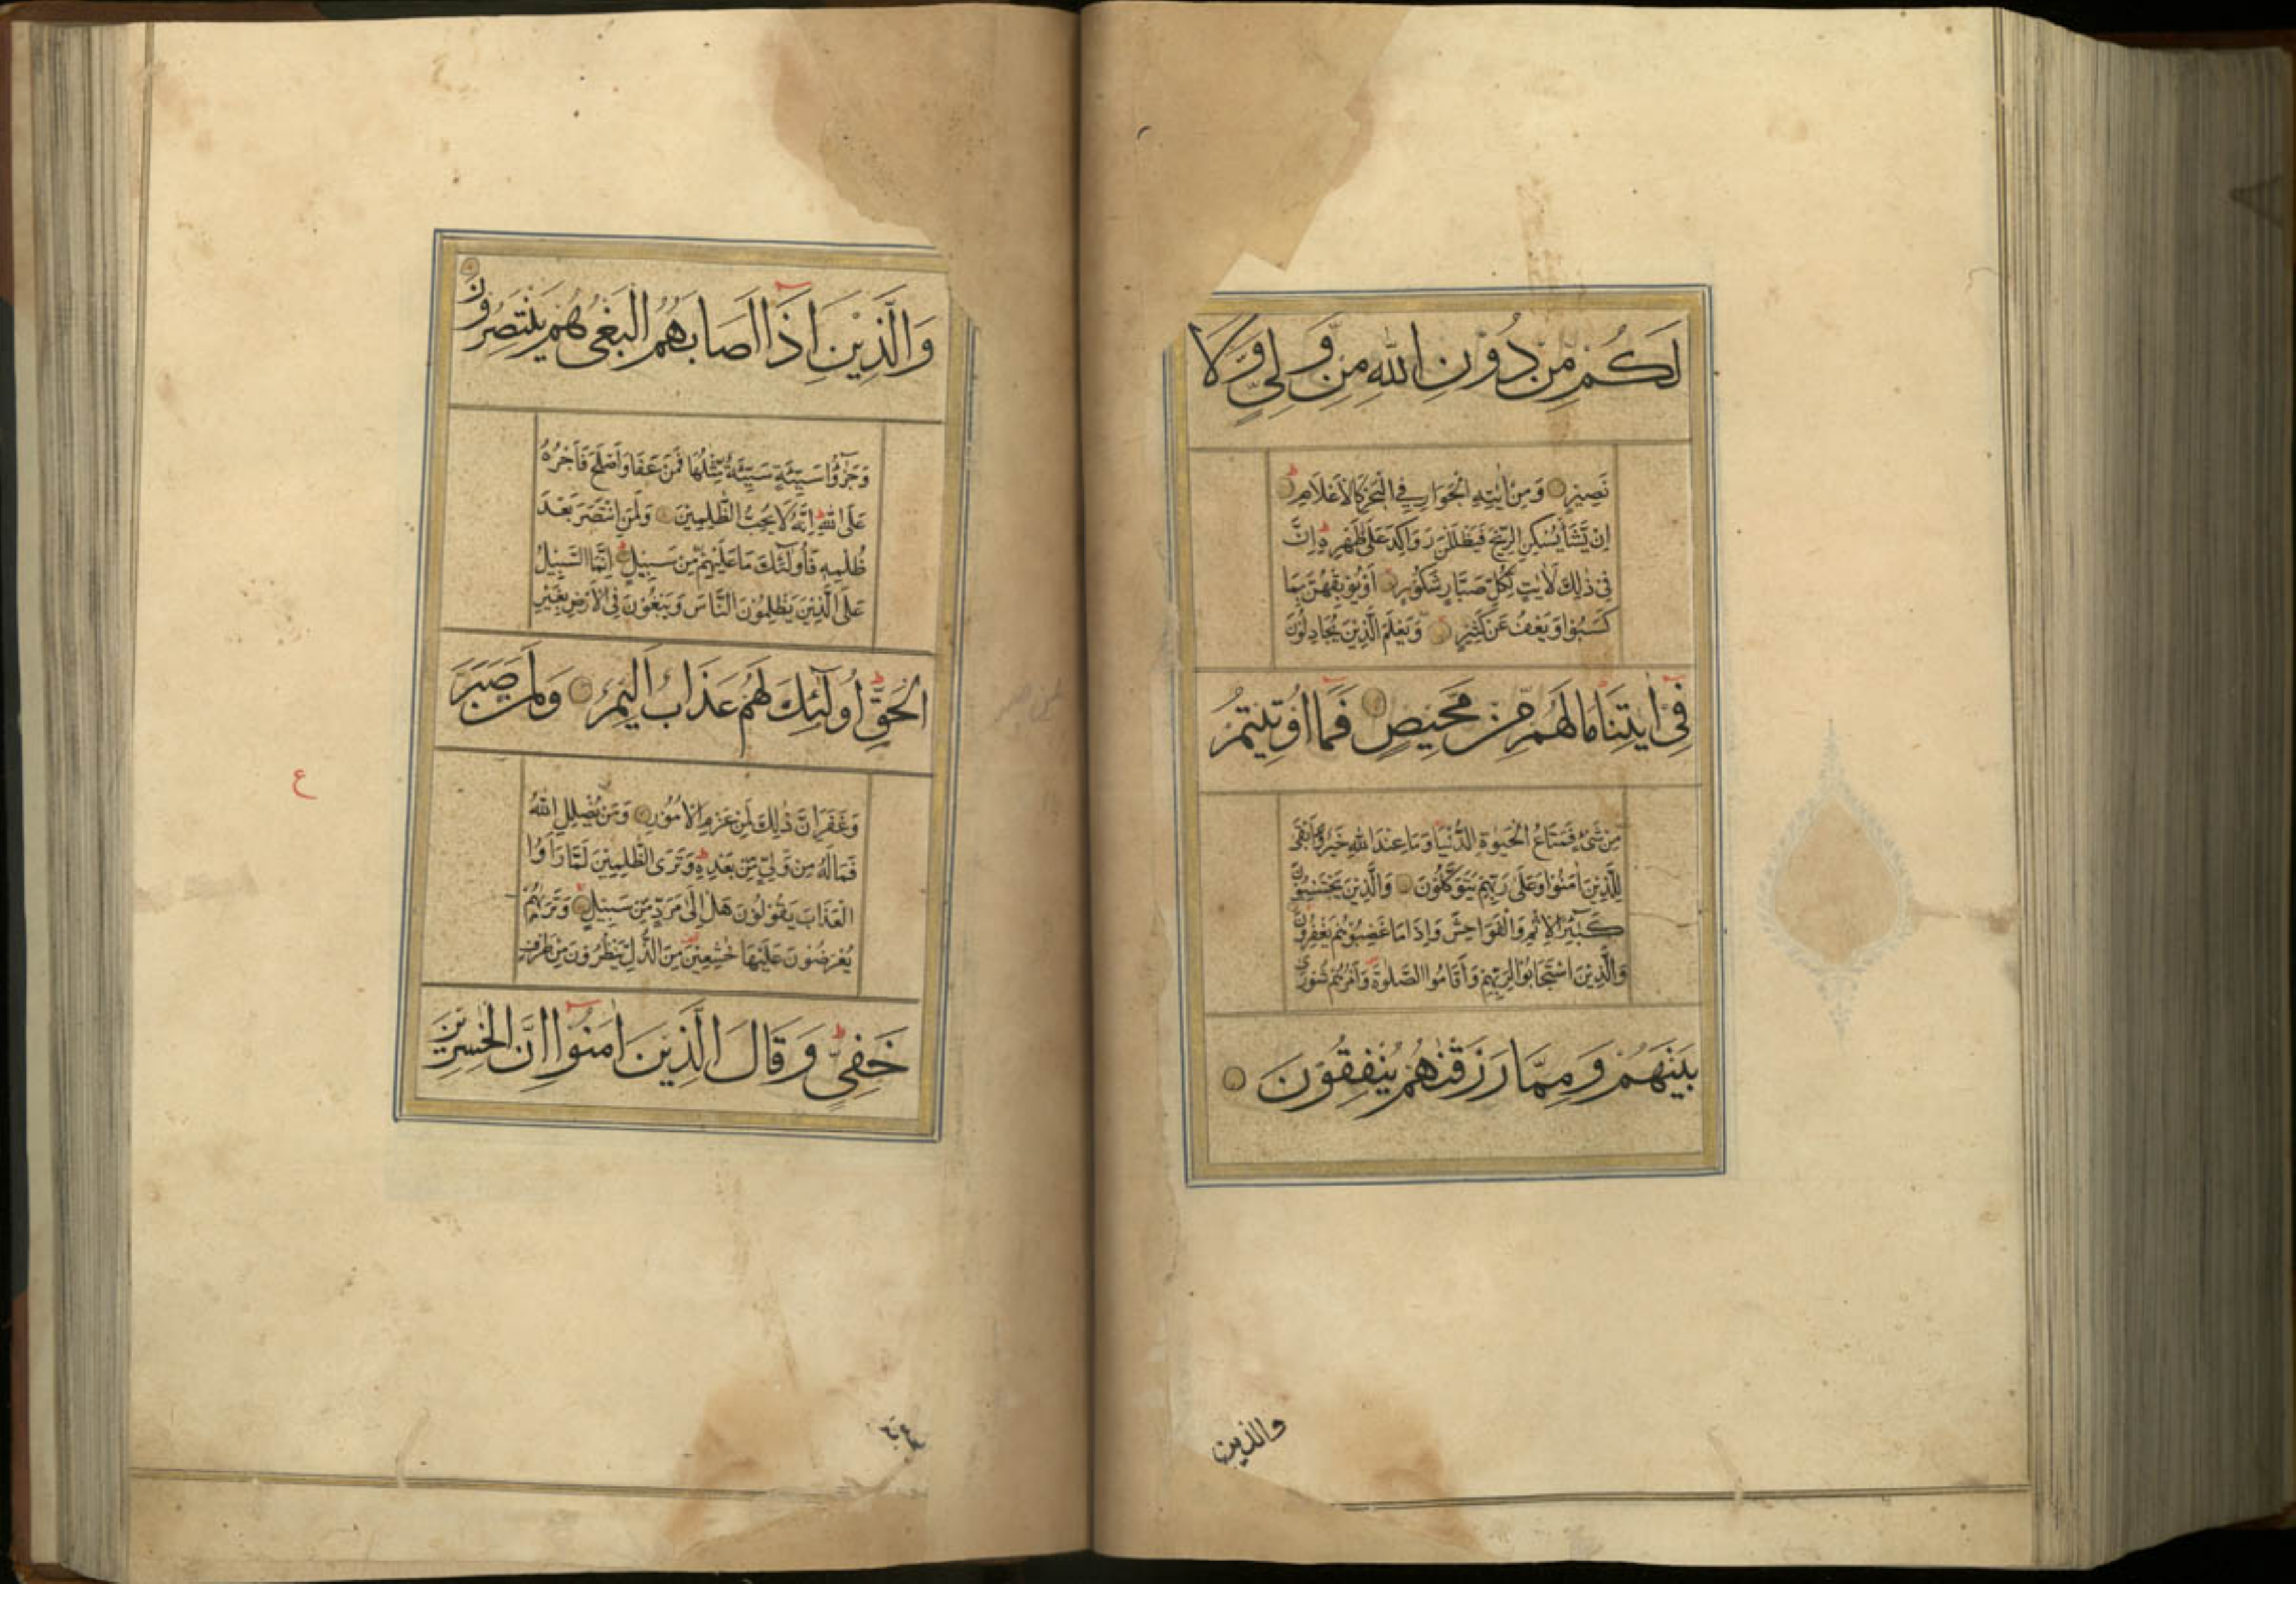 لَكُمْ مِنْ دُوْنِ اللهِ مِنْ وَّلِيٍّ وَّلَا
نَصِيْرٍ وَمِنْ اٰيٰتِهِ الْجَوَارِ فِي الْبَحْرِ كَالْاَعْلَامِ
اِنْ يَّشَأْ يُسْكِنِ الرِّيْحَ فَيَظْلَلْنَ رَوَاكِدَ عَلٰى ظَهْرِهٖ اِنَّ
فِيْ ذٰلِكَ لَاٰيٰتٍ لِّكُلِّ صَبَّارٍ شَكُوْرٍ اَوْ يُوْبِقْهُنَّ بِمَا
كَسَبُوْا وَيَعْفُ عَنْ كَثِيْرٍ وَّيَعْلَمَ الَّذِيْنَ يُجَادِلُوْنَ
فِيْ اٰيٰتِنَا مَا لَهُمْ مِّنْ مَّحِيْصٍ فَمَا اُوْتِيْتُمْ
مِنْ شَيْءٍ فَمَتَاعُ الْحَيٰوةِ الدُّنْيَا وَمَا عِنْدَ اللهِ خَيْرٌ وَّاَبْقٰى
لِلَّذِيْنَ اٰمَنُوْا وَعَلٰى رَبِّهِمْ يَتَوَكَّلُوْنَ وَالَّذِيْنَ يَجْتَنِبُوْنَ
كَبٰٓئِرَ الْاِثْمِ وَالْفَوَاحِشَ وَاِذَا مَا غَضِبُوْا هُمْ يَغْفِرُوْنَ
وَالَّذِيْنَ اسْتَجَابُوْا لِرَبِّهِمْ وَاَقَامُوا الصَّلٰوةَ وَاَمْرُهُمْ شُوْرٰى
بَيْنَهُمْ وَمِمَّا رَزَقْنٰهُمْ يُنْفِقُوْنَ
والذين
وَالَّذِيْنَ اِذَا اَصَابَهُمُ الْبَغْيُ هُمْ يَنْتَصِرُوْنَ
وَجَزٰٓؤُا سَيِّئَةٍ سَيِّئَةٌ مِّثْلُهَا فَمَنْ عَفَا وَاَصْلَحَ فَاَجْرُهٗ
عَلَى اللهِ اِنَّهٗ لَا يُحِبُّ الظّٰلِمِيْنَ وَلَمَنِ انْتَصَرَ بَعْدَ
ظُلْمِهٖ فَاُولٰٓئِكَ مَا عَلَيْهِمْ مِّنْ سَبِيْلٍ اِنَّمَا السَّبِيْلُ
عَلَى الَّذِيْنَ يَظْلِمُوْنَ النَّاسَ وَيَبْغُوْنَ فِي الْاَرْضِ بِغَيْرِ
الْحَقِّ اُولٰٓئِكَ لَهُمْ عَذَابٌ اَلِيْمٌ وَلَمَنْ صَبَرَ
وَغَفَرَ اِنَّ ذٰلِكَ لَمِنْ عَزْمِ الْاُمُوْرِ وَمَنْ يُّضْلِلِ اللهُ
فَمَا لَهٗ مِنْ وَّلِيٍّ مِّنْ بَعْدِهٖ وَتَرَى الظّٰلِمِيْنَ لَمَّا رَاَوُا
الْعَذَابَ يَقُوْلُوْنَ هَلْ اِلٰى مَرَدٍّ مِّنْ سَبِيْلٍ وَتَرٰىهُمْ
يُعْرَضُوْنَ عَلَيْهَا خٰشِعِيْنَ مِنَ الذُّلِّ يَنْظُرُوْنَ مِنْ طَرْفٍ
خَفِيٍّ وَقَالَ الَّذِيْنَ اٰمَنُوْا اِنَّ الْخٰسِرِيْنَ
ع